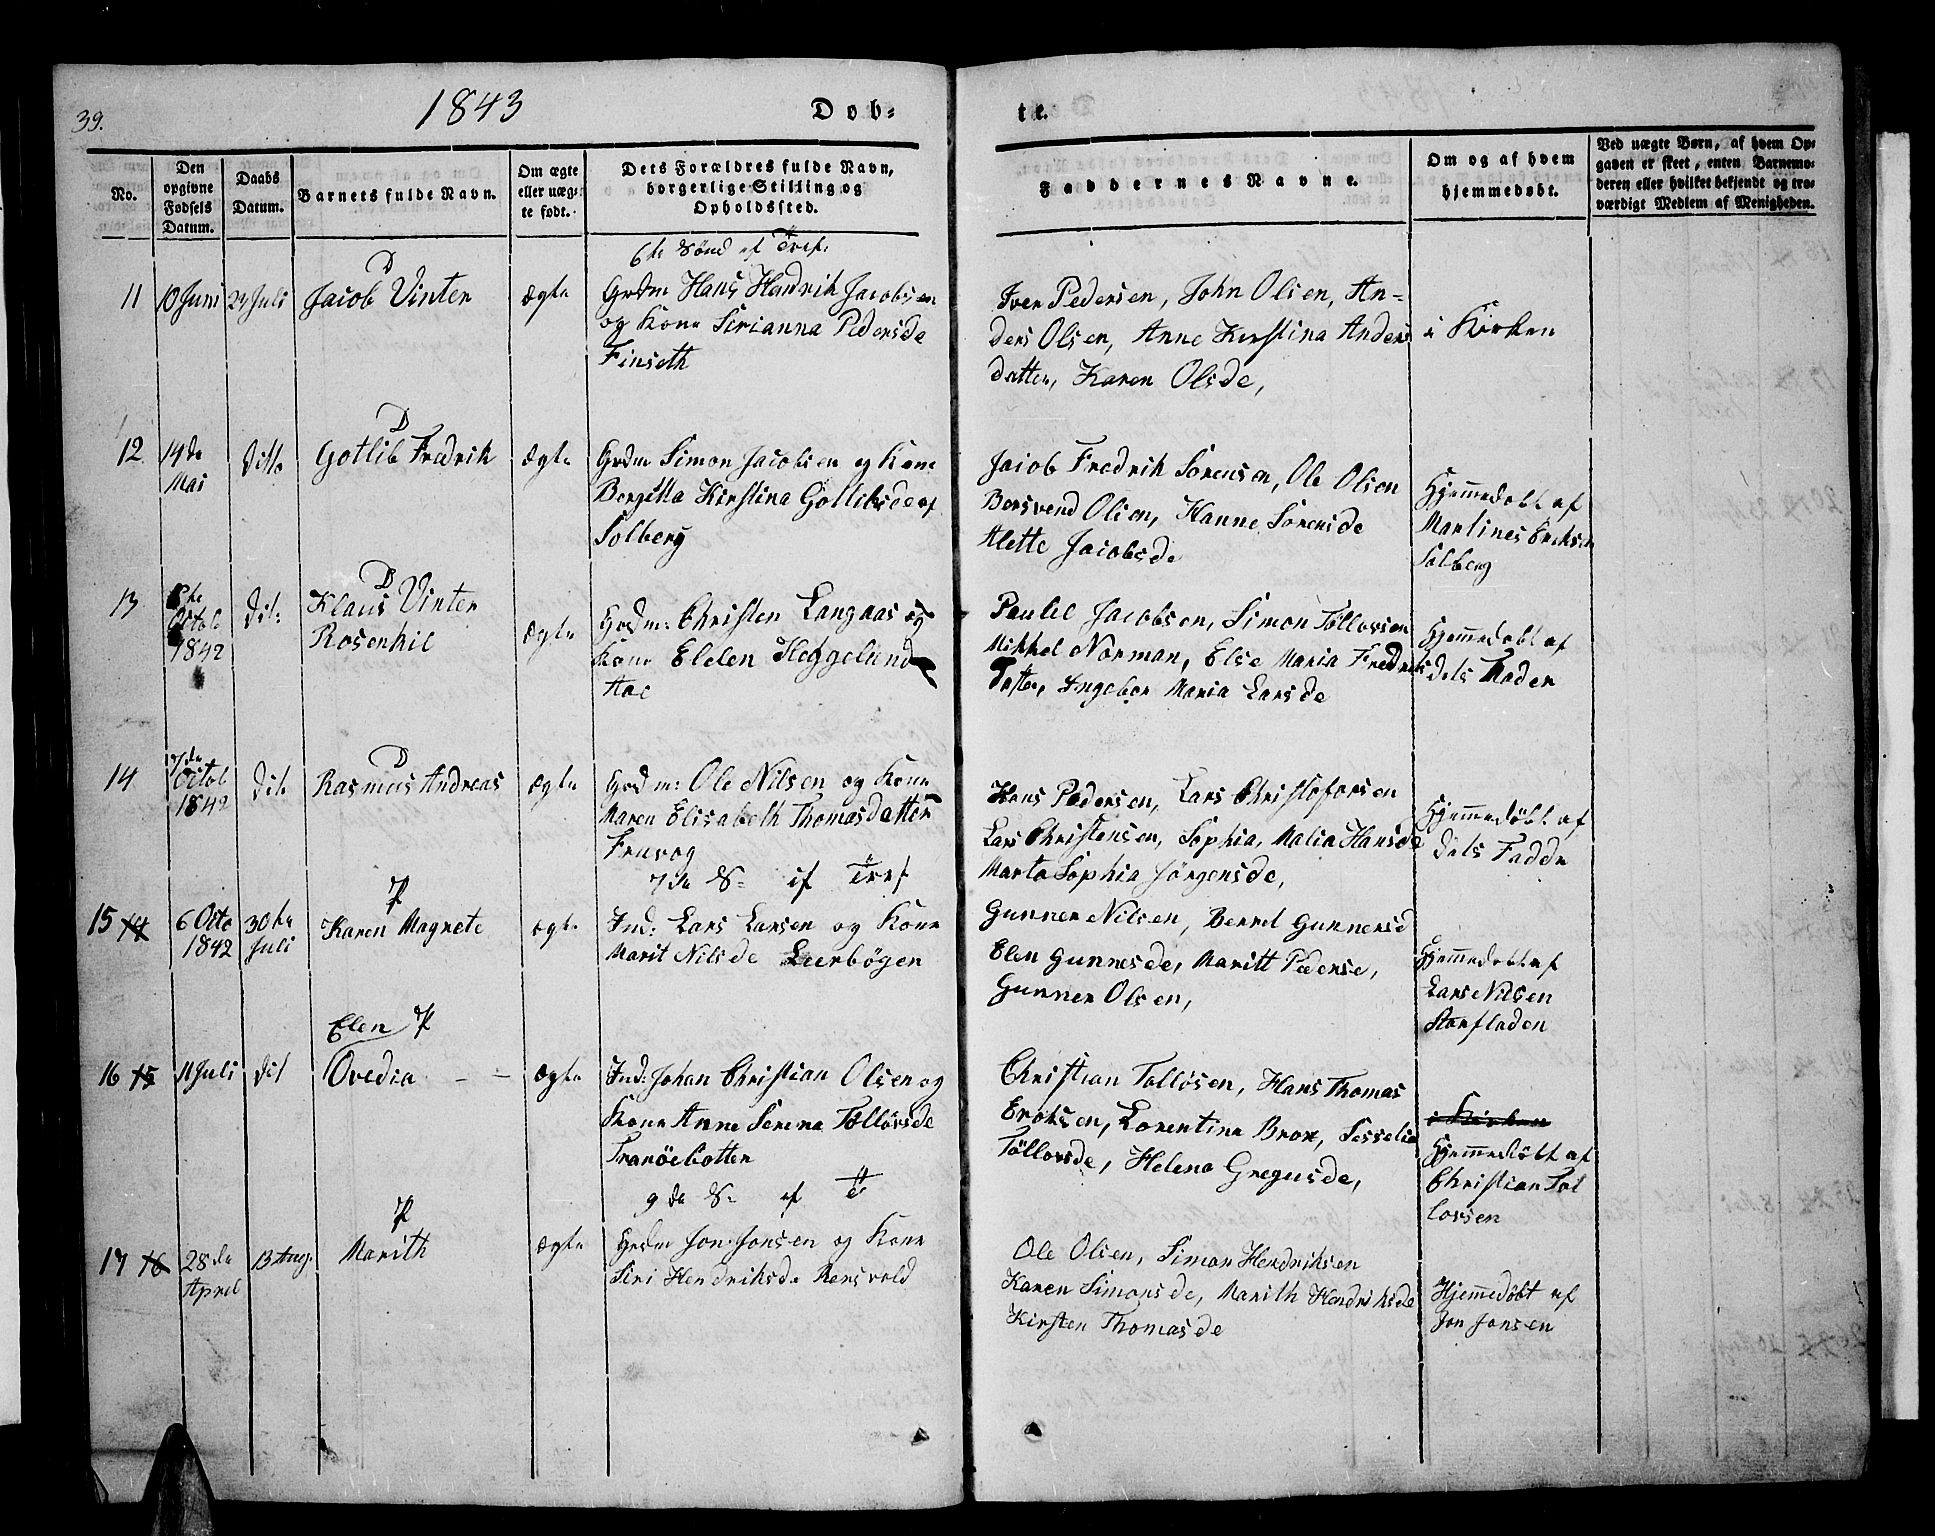 39.
1843
Dob-
te.
No.
Den opgivne Fødsels Datum.
Daabs Datum.
Barnets fulde Navn.
Om ægte eller uægte født.
Dets Forældres fulde Navn, borgerlige Stilling og Opholdssted.
Faddernes Navne.
Om og af hvem hjemmedøbt.
Ved uægte Børn, af hvem Opgaven er skeet, enten Barnemoderen eller hvilket bekjendt og troværdigt Medlem af Menigheden.
6te Sönd af Tref.
11
10 Juni
24 Juli
D
Jacob Vinter
Ægte
Grdm Hans Hendrik Jacobsen
og Kone Sirianna Pedersde
Finseth
Iver Pedersen, John Olsen, An=
ders Olsen, Anne Kirstina Anders
datter, Karen Olsde,
i Kirken
12
14de
Mai
Ditto
D
Gotlib Fredrik
Ægte
Grdm Simon Jacobsen og Kone
Bergitta Kirstina Gotlibsde af
Solberg
Jacob Fredrik Sörensen, Ole Olsen
Borsvend Olsen, Hanne Sörensde
Alette Jacobsde
Hjemmedöbt af
Martines Eriksen
Solberg
13
Octob
1842
Dit:
D
Klaus Vinter
Rosenhil
Ægte
Grdm: Christen Langaas og
Kone Elelen Heggelund
Aae
Paulel Jacobsen, Simon Töllovsen
Mikkel Norman, Else Maria Fredriks
Datter, Ingebor Maria Larsde
Hjemmedobt af
dets Fader
14
7de
Octob
1842
Dit
D
Rasmus Andreas
Ægte
Grdm: Ole Nilsen og Kone
Maren Elisabeth Thomasdatter
Fruvog
Hans Pedersen, Lars Christofersen
Lars Christensen, Sophia Malia Hansde
Marta Sophia Jörgensde,
Hjemmedöbt af
dets Fader
7de S= af Tref
15 14
6 Octo
1842
30te
Juli
P
Karen Magrete
Ægte
Ind: Lars Larsen og Kone
Marit Nilsde Leerbögen
Gunner Nilsen, Berret Gunnersd
Elen Gunnesde, Maritt Pederse,
Gunner Olsen,
Hjemmedobt af
Lars Nilsen
Storfladen
16 15
11 Juli
Dit
Elen P
Ovedia - -
Ægte
Ind: Johan Christian Olsen og
Kone Anne Serena Töllövsde
Tranöebotten
Christian Tollösen, Hans Thomas
Eriksen, Lorentina Brox, Sesselia
Töllovsde, Helena Gregusde,
i Kirken
Hjemmedöbt af
Christian Tol
lovsen
9de S= af T
17 16
28de
April
13 Aug.
P
Marith
Ægte
Grdm Jon Jonsen og Kone
Siri Hendriksde Rensvold
Ole Olsen, Simon Hendriksen
Karen Simonsde, Marith Hendriksde
Kirsten Thomasde
Hjemmedöbt af
Jon Jonsen